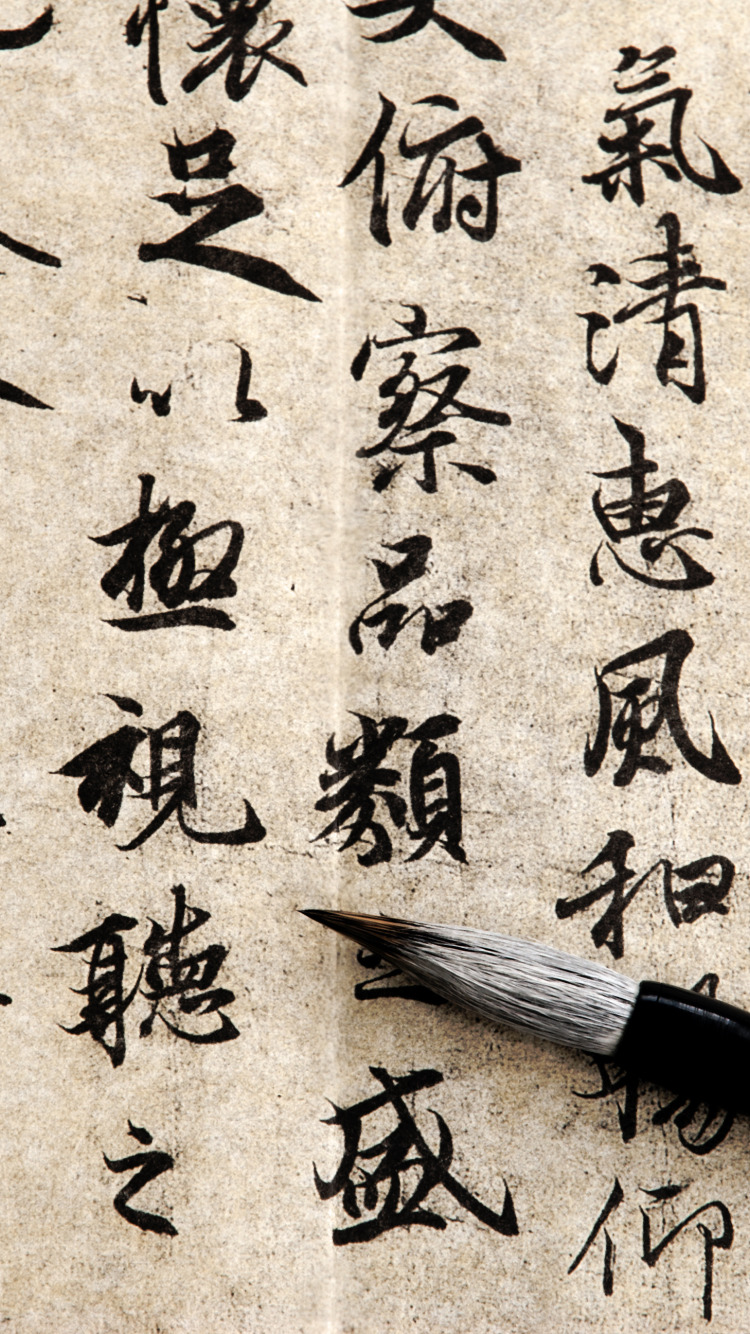 氣清惠風和暢仰
大俯察品類盛
懷足以極視聽之